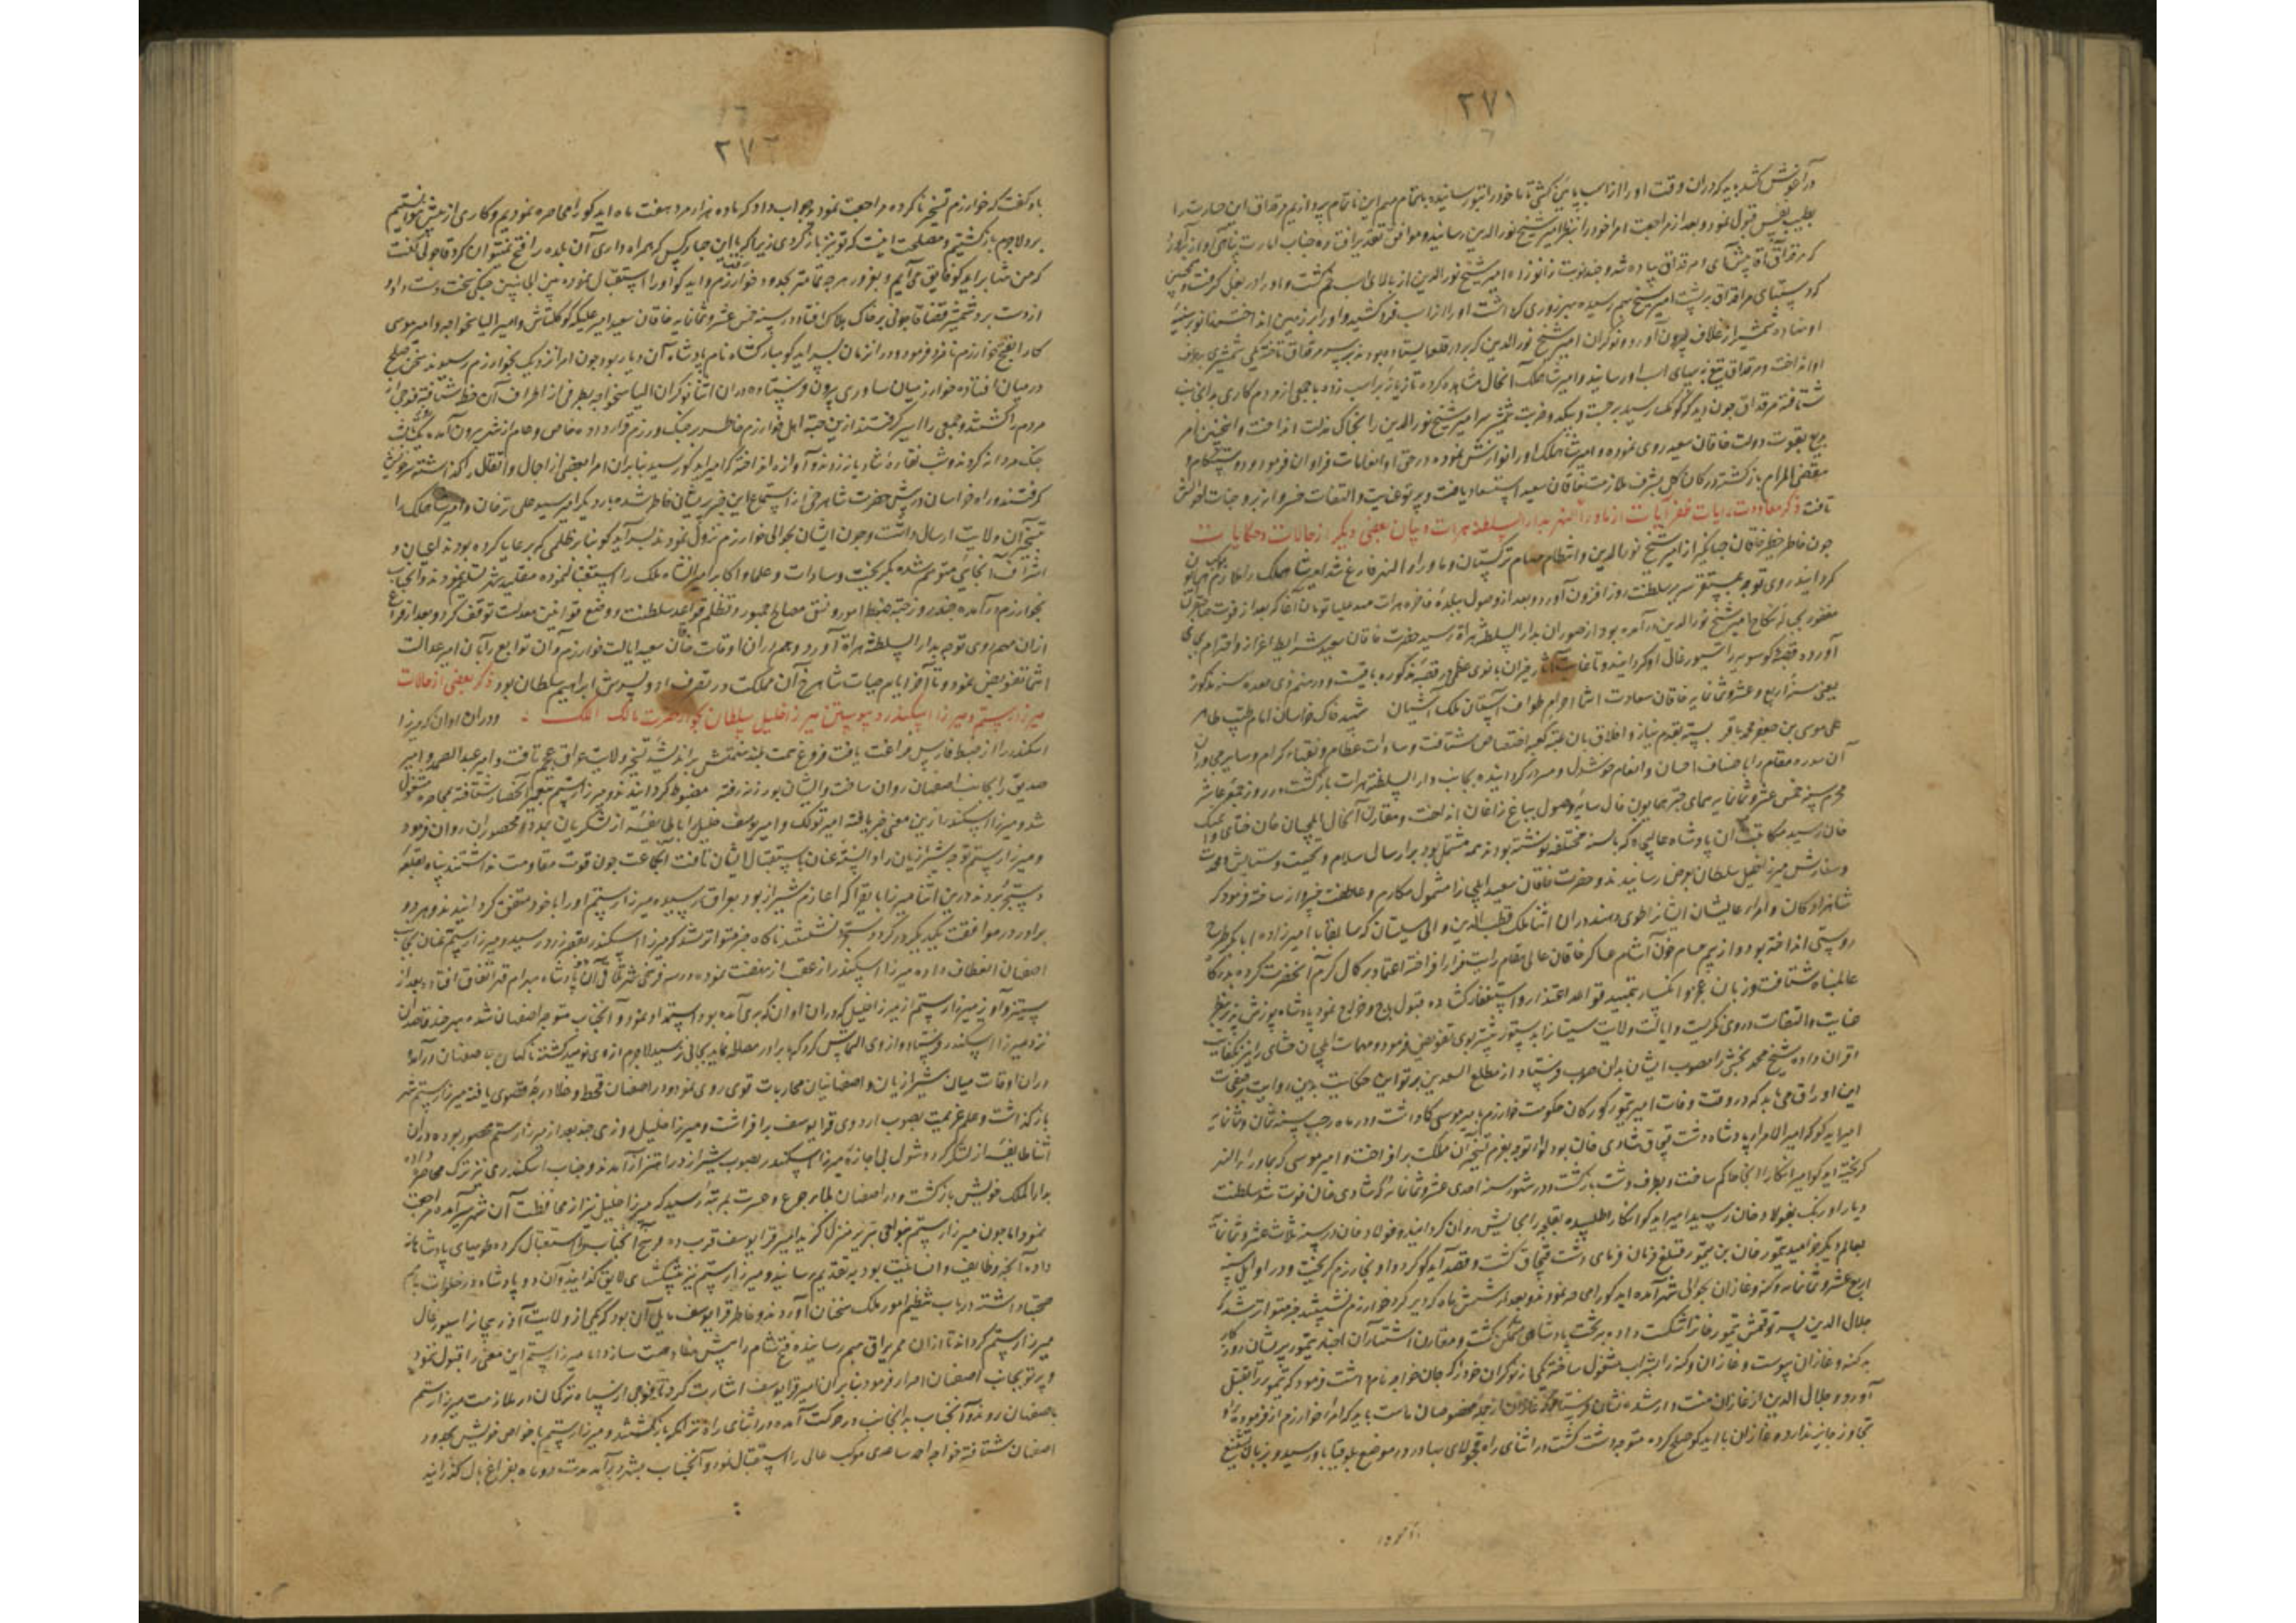 ۲۷۱
در آغوش کشد باید که در ان وقت او را از اسب پایین کشی تا ما خود را بتو رسانیده باتمام مهم این ناتمام پردازیم مرقداق این جسارت را
بطیب نفس قبول نمود و بعد از مراجعت امرا خود را بنظر امیر شیخ نور الدین رسانید و موافق تقدیر
که مرقداق پیاده شد و چند نوبت زانو زده امیر شیخ نور الدین از بالای اسب خم گشت و او را در بغل گرفت و
که دستهای مرقداق بر پشت امیر شیخ بهم رسیده بهر زوری که داشت او را از اسب فرو کشید و او را بر زمین انداخت
او نهاده شمشیر از غلاف بیرون آورد و نوکران امیر شیخ نور الدین که بر در قلعه ایستاده بودند بر سر مرقداق تاخته یکی شمشیری
او انداخت و مرقداق تیغ به پای اسب او رسانید و امیر شاهملک آنحال مشاهده کرده تازیانه بر اسب زده با جمعی از مردم کاری بدانجانب
شتافته مرقداق چون دید که کومک رسید برجست و بیک دو ضرب شمشیر سر امیر شیخ نور الدین را بخاک مذلت انداخت و اینچنین امر
بدیع بقوت دولت خاقان سعید روی نموده و امیر شاهملک او را نوازش نموده در حق او انعامات فراوان فرمود و دوستکام و
مقضی المرام بازگشته در کان گل بشرف ملازمت خاقان سعید استسعاد یافت و پرتو عنایت و التفات خسروانه بر وجنات احوالش
تافت ذکر معاودت رایات ظفر آیات از ماوراء النهر بدار السلطنه هرات و بیان بعضی دیگر از حالات و حکایات
چون خاطر خطیر خاقان جهانگیر از امیر شیخ نور الدین و انتظام مهام ترکستان و ماوراء النهر فارغ شد امیر شاهملک را
گردانید روی توجه بمستقر سریر سلطنت روز افزون آورد و بعد از وصول ببلده فاخره هرات مهد علیا تومان آغا که بعد از فوت
مغفور بحباله نکاح امیر شیخ نور الدین در آمده بود از صوران بدار السلطنه هراة رسید حضرت خاقان سعید شرایط اعزاز و احترام بجای
آورده قصبه کوسویه را بسیورغال او گردانید
یعنی سنه اربع و عشر و ثمانمایه خاقان سعادت انتما احرام طواف آستان ملک آشیان شهید خاک خراسان امام طیب طاهر
علی موسی بن جعفر محمد باقر بسته بقدم نیاز و اخلاص بان عتبه کعبه اختصاص شتافت و سادات عظام و نقباء کرام و سایر مجاوران
آن سده مقام را باصناف احسان و انعام خوشدل و مسرور گردانیده بجانب دار السلطنه هرات بازگشت و در روز جمعه عاشر
محرم سنه خمس عشر و ثمانمایه همای چتر همایون فال سایه وصول بباغ زاغان انداخت و مقارن آنحال ایلچیان خان ختای
خان رسید مکاتبت آن پادشاه عالیجاه که باسنه مختلفه نوشته بودند همه مشتمل بود بر ارسال سلام و تحیت و ستایش و محمدت
و سفارش میرزا خلیل سلطان بعرض رسانیدند و حضرت خاقان سعید ایلچیانرا مشمول مکارم و عواطف خسروانه ساخته فرمود که
شاهزادگان و امراء عالیشان ایشانرا طوی دهند در ان اثنا ملک قطب الدین والی سیستان که سابقا با امیرزاده ابابکر طرح
دوستی انداخته بود و از بیم حسام خون آشام عساکر خاقان عالی مقام رایت فرار افراخته اعتماد بر کمال کرم آنحضرت کرده بدرگاه
عالمپناه شتافت و زبان عجز و انکسار بتمهید قواعد اعتذار و استغفار گشاده قبول باج و خراج نمود پادشاه پوزش پذیر نظر
عنایت و التفات در وی نگریست و ایالت ولایت سیستانرا بدستور پیشتر بوی تفویض فرمود و مهمات ایلچیان ختای را نیز
اقران داده شیخ محمد بخشی را مصحوب ایشان بدان صوب فرستاد از مطلع السعدین پرتو این حکایت بدین روایت بر صفحات
این اوراق می تابد که در وقت وفات امیر تیمور گورکان حکومت خوارزم بامیر موسی کا داشت و در ماه رجب سنه ثمان و ثمانمایه
امیر ایدکو که امیر الامراء پادشاه دشت قبچاق شادی خان بود لواء توجه بعزم تسخیر آن ملک برافراخت و امیر موسی کا بماوراء النهر
گریخته ایدکو امیر انکا را آنجا حاکم ساخت و بطرف دشت بازگشت و در شهور سنه احدی عشر و ثمانمایه که شادی خان فوت شد سلطنت
دیار اوزبک بفولاد خان رسید امیر ایدکو انکا را طلبیده بقلجه را بجایش روان گردانید و فولاد خان در سنه ثلاث عشر و ثمانمایه
بعالم دیگر خرامید تیمور خان بن تیمور قتلغ فرمان فرمای دشت قبچاق گشت و قصد ایدکو کرد و او بخوارزم گریخت و در اوایل سنه
اربع عشر و ثمانمایه دکنه و غازان بحوالی شهر آمده ایدکو را محاصره نمودند و بعد از شش ماه که در گرد خوارزم نشستند خبر متواتر شد که
جلال الدین پسر توقتمش تیمور خانرا شکست داده بر تخت پادشاهی متمکن گشت و مقارن اشتهار آن اخبار تیمور پریشان روزگار
بدکنه و غازان پیوست و غازان دکنه را بشراب مشغول ساخته یکی از نوکران خود را که جان خواجه نام داشت فرمود که تیمور را بقتل
آورد و جلال الدین از غازان منت دار شده نشان
تجاوز جایز ندارد و غازان با ایدکو صلح کرده متوجه دشت گشت در اثنای راه قجولای بهادر در موضع بلوقیا باو رسید و بزبان تشنیع
۲۷۲
باو گفت که خوارزم تسخیر ناکرده مراجعت نمود جواب داد که ما ده هزار مرد هفت ماه ایدکو را محاصره نمودیم و کاری از پیش نتوانستیم
برد لاجرم بازگشتیم و مصلحت اینست که تو نیز بازگردی زیرا که با این چهار کس که همراه داری آن بلده را فتح نمیتوان کرد قجولی گفت
که من تنها برابر ایدکو فایق می آیم و بغرور هر چه تمامتر بحدود خوارزم رفت و ایدکو او را استقبال نموده بین الجانبین جنگی سخت دست داد و
از دست برد شمشیر قضا قجولی بر خاک هلاک افتاد در سنه خمس عشر و ثمانمایه خاقان سعید امیر علیکه کوکلتاش و امیر الیاسخواجه و امیر موسی
کا را بفتح خوارزم نامزد فرمود و در ان زمان پسر ایدکو مبارکشاه نام پادشاه آن دیار بود چون امرا نزدیک بخوارزم رسیدند سخن صلح
در میان افتاده خوارزمیان ساوری بیرون فرستاده در ان اثنا نوکران الیاسخواجه بطرفی از اطراف آن خطه شتافته فوجی از
مردم را کشتند و جمعی را اسیر گرفتند ازین جهة اهل خوارزم خاطر بر جنگ و رزم قرار داده خاص و عام از شهر بیرون آمده
جنگ مردانه کردند و شب نقاره شادیانه زدند و آوازه انداخته که امیر ایدکو رسید بنابران امرا بعضی از احمال و اثقال را گذاشته
گرفتند و راه خراسان در پیش حضرت شاهرخی از استماع این خبر پریشان خاطر شده بار دیگر امیر سید علی ترخان و امیر شاهملک را
بتسخیر آن ولایت ارسال داشت و چون ایشان بحوالی خوارزم نزول نمودند پسر ایدکو بنابر ظلمی که بر رعایا کرده بود از اعیان و
اشراف آنجائی متوهم شده بگریخت و سادات و علما و اکابر امیر شاه ملک را استقبال نموده مقالید شهر تسلیم نمودند و آنجناب
بخوارزم در آمده چند روز جهة ضبط امور و نسق مصالح جمهور و تنظیم قواعد سلطنت و وضع قوانین معدلت توقف کرد و بعد از فراغ
ازان مهم روی توجه بدار السلطنه هراة آورد و هم در ان اوقات خاقان سعید ایالت خوارزم و آن توابع را بآن امیر عدالت
انتما تفویض نمود و تا آخر ایام حیات شاهرخ آن مملکت در تصرف او و پسرش ابراهیم سلطان بود ذکر بعضی از حالات
میرزا رستم و میرزا اسکندر و پیوستن میرزا خلیل سلطان بجوار حضرت مالک الملک در ان اوان که میرزا
اسکندر را از ضبط فارس فراغت یافت فروغ همت بلند نهمتش بر اندیشه تسخیر ولایت عراق عجم تافت و امیر عبد الصمد و امیر
صدیق را بجانب اصفهان روان ساخت و ایشان بورزنه رفته مضبوط گردانیدند و میرزا رستم بتعجیل آنحصار شتافته بمحاصره مشغول
شد و میرزا اسکندر ازین معنی خبر یافته امیر توکل و امیر یوسف خلیل را با طایفه از لشکریان بمدد محصوران روان فرمود
و میرزا رستم توجه شیرازیان را دانسته عنان باستقبال ایشان تافت آنجماعت چون قوت مقاومت نداشتند پناه بقلعه
دستجرد بردند درین اثنا میرزا بایقرا که عازم شیراز بود بعراق رسیده میرزا رستم او را با خود متفق گردانید و هر دو
برادر در موافقت یکدیگر در گرد دستجرد نشستند ناگاه خبر متواتر شد که میرزا اسکندر بقصر زرد رسید و میرزا رستم عنان بجانب
اصفهان انعطاف داده میرزا اسکندر از عقب او نهضت نموده در سه فرسخی شهر تلاقی آن دو پادشاه بهرام قهر اتفاق افتاد و بعد از
ستیز و آویز میرزا رستم از میرزا خلیل که در ان اوان که بری آمده بود استمداد نمود و آنجناب متوجه اصفهان شده هر چند قاصدان
نزد میرزا اسکندر فرستاد و از وی التماس کرد که با برادر مصالحه نماید بجائی نرسید لاجرم از وی نومید گشته ناگهان باصفهان درآمد
در ان اوقات میان شیرازیان و اصفهانیان محاربات قوی روی نمود و در اصفهان قحط و غلا درجه قصوی یافته میرزا رستم شهر
بازگذاشت و علم عزیمت بصوب اردوی قرا یوسف برافراشت و میرزا خلیل روزی چند بعد از میرزا رستم محصور بوده در ان
اثنا طایفه از لشکر کرد و شول بی اجازه میرزا اسکندر بصوب شیراز در اهتزاز آمدند و جناب اسکندری نیز ترک محاصره داده
بدار الملک خویش بازگشت و در اصفهان بلاء جوع و عسرت بمرتبه رسید که میرزا خلیل نیز از محافظت آن شهر بسر آمده مراجعت
نمود اما چون میرزا رستم بنواحی تبریز منزل گزید امیر قرا یوسف قرب ده فرسخ آنجناب را استقبال کرده طوییهای پادشاهانه
داده آنچه وظایف انسانیت بود بتقدیم رسانید و میرزا رستم نیز پیشکشهای لایق گذرانید و آن دو پادشاه در خلوات باهم
صحبتها داشته در باب تنظیم امور ملک سخنان آوردند و خاطر قرا یوسف مایل آن بود که یکی از ولایت آذربیجانرا سیورغال
میرزا رستم گرداند تا ازان ممر یراق بهم رسانیده فتح شام را پیش نهاد همت سازد اما میرزا رستم این معنی را قبول ننمود
و پرتو بجانب اصفهان اصرار فرمود بنابران امیر قرا یوسف اشارت کرد تا فوجی از سپاه ترکمان در ملازمت میرزا رستم
باصفهان روند و آنجناب بدانجانب در حرکت آمده در اثنای راه تراکمه بازگشتند و میرزا رستم با خواص خویش بحدود
اصفهان شتافته خواجه احمد ساعدی موکب عالی را استقبال نمود و آنجناب بشهر درآمد مدت دو ماه بفراغ بال گذرانید